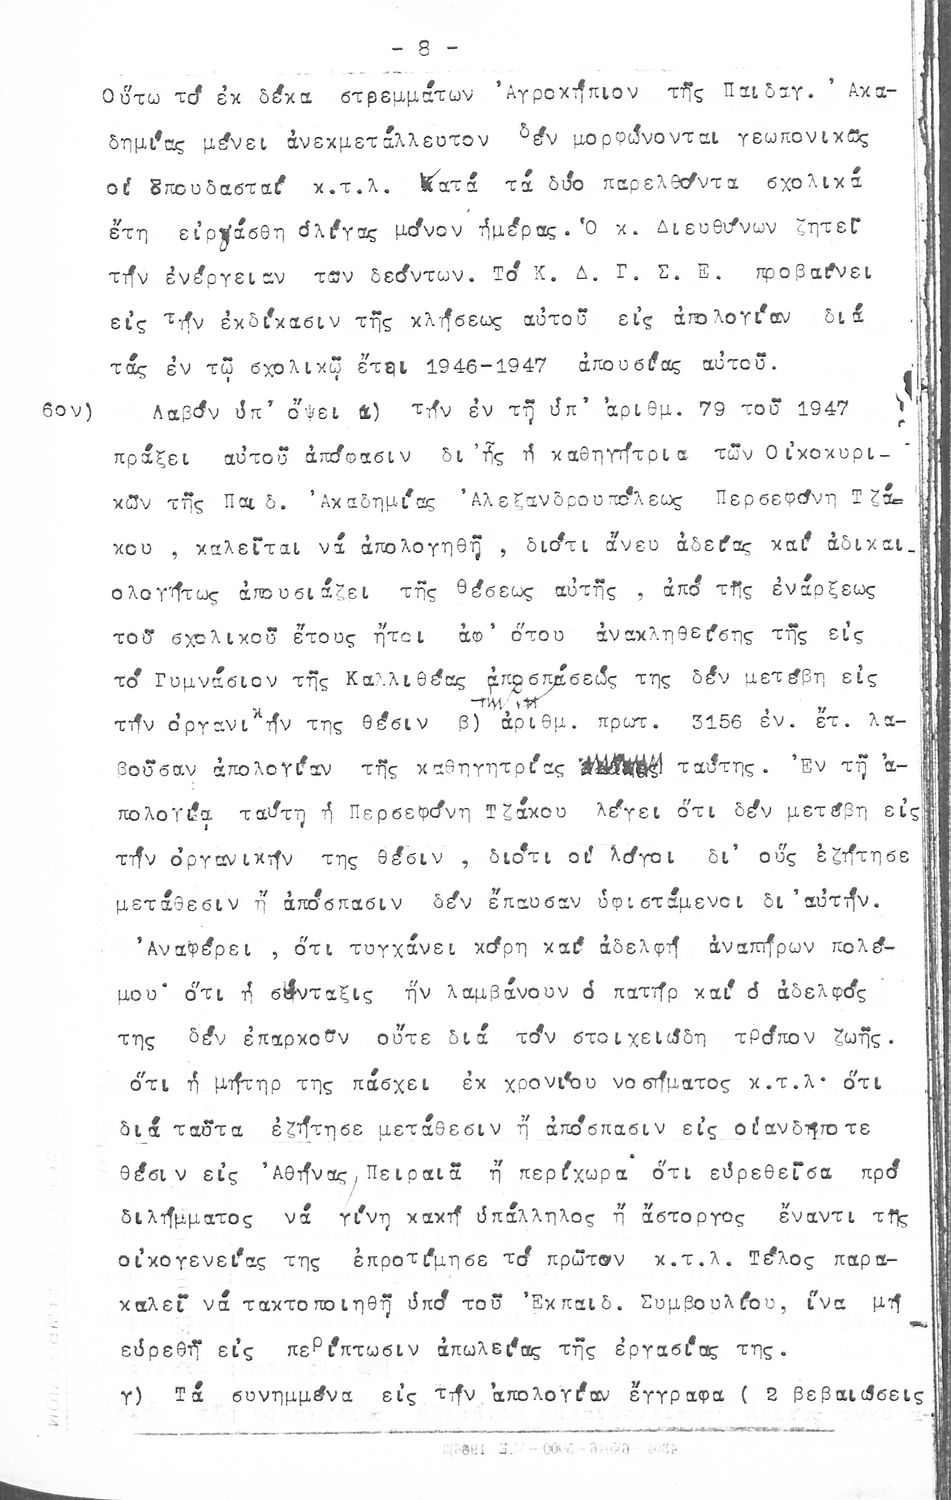 - 8 -
Οὕτω τό ἐκ δέκα στρεμμάτων ᾽Αγροκήπιον τῆς Παιδαγ. ᾽Ακα-
δημίας μένει ἀνεκμετάλλευτον δέν μορφώνονται γεωπονικῶς
οἱ Σπουδασταί κ.τ.λ. Κατά τά δύο παρελθόντα σχολικά
ἔτη εἰργάσθη ὀλίγας μόνον ἡμέρας. Ὁ κ. Διευθύνων ζητεῖ
τήν ἐνέργειαν των δεόντων. Τό Κ. Δ. Γ. Σ. Ε. προβαίνει
εἰς τήν ἐκδίκασιν τῆς κλήσεως αὐτοῦ εἰς ἀπολογίαν διά
τάς ἐν τῷ σχολικῷ ἔτει 1946-1947 ἀπουσίας αὐτοῦ.
6ον) Λαβόν ὑπ᾽ ὄψει α) τήν ἐν τῇ ὑπ᾽ ἀριθμ. 79 τοῦ 1947
πράξει αὐτοῦ ἀπόφασιν δι᾽ἧς ἡ καθηγήτρια τῶν Οἰκοκυρι-
κῶν τῆς Παιδ. ᾽Ακαδημίας ᾽Αλεξανδρουπόλεως Περσεφόνη Τζά-
κου , καλεῖται νά ἀπολογηθῇ , διότι ἄνευ ἀδείας καί ἀδικαι-
ολογήτως ἀπουσιάζει τῆς θέσεως αὐτῆς , ἀπό τῆς ἐνάρξεως
τοῦ σχολικοῦ ἔτους ἤτοι ἀφ᾽ ὅτου ἀνακληθείσης τῆς εἰς
τό Γυμνάσιον τῆς Καλλιθέας ἀποσπάσεώς της δέν μετέβη εἰς
τήν ὀργανικήν της θέσιν β) τήν ὑπ᾽ ἀριθμ. πρωτ. 3156 ἐν. ἔτ. λα-
βοῦσαν ἀπολογίαν τῆς καθηγητρίας ταύτης. ᾽Εν τῇ ἀ-
πολογίᾳ ταύτῃ ἡ Περσεφόνη Τζάκου λέγει ὅτι δέν μετέβη εἰς
τήν ὀργανικήν της θέσιν , διότι οἱ λόγοι δι᾽ οὕς ἐζήτησε
μετάθεσιν ἤ ἀπόσπασιν δέν ἔπαυσαν ὑφιστάμενοι δι᾽αὐτήν.
᾽Αναφέρει , ὅτι τυγχάνει κόρη καί ἀδελφή ἀναπήρων πολέ-
μου· ὅτι ἡ σύνταξις ἥν λαμβάνουν ὁ πατήρ καί ὁ ἀδελφός
της δέν ἐπαρκοῦν οὔτε διά τόν στοιχειώδη τρόπον ζωῆς.
ὅτι ἡ μήτηρ της πάσχει ἐκ χρονίου νοσήματος κ.τ.λ· ὅτι
διά ταῦτα ἐζήτησε μετάθεσιν ἤ ἀπόσπασιν εἰς οἱανδήποτε
θέσιν εἰς ᾽Αθήνας, Πειραιᾶ ἤ περίχωρα· ὅτι εὑρεθεῖσα πρό
διλήμματος νά γίνῃ κακή ὑπάλληλος ἤ ἄστοργος ἔναντι τῆς
οἰκογενείας της ἐπροτίμησε τό πρῶτον κ.τ.λ. Τέλος παρα-
καλεῖ νά τακτοποιηθῇ ὑπό τοῦ ᾽Εκπαιδ. Συμβουλίου, ἵνα μή
εὑρεθῇ εἰς περίπτωσιν ἀπωλείας τῆς ἐργασίας της.
γ) Τά συνημμένα εἰς τήν ἀπολογίαν ἔγγραφα ( 2 βεβαιώσεις